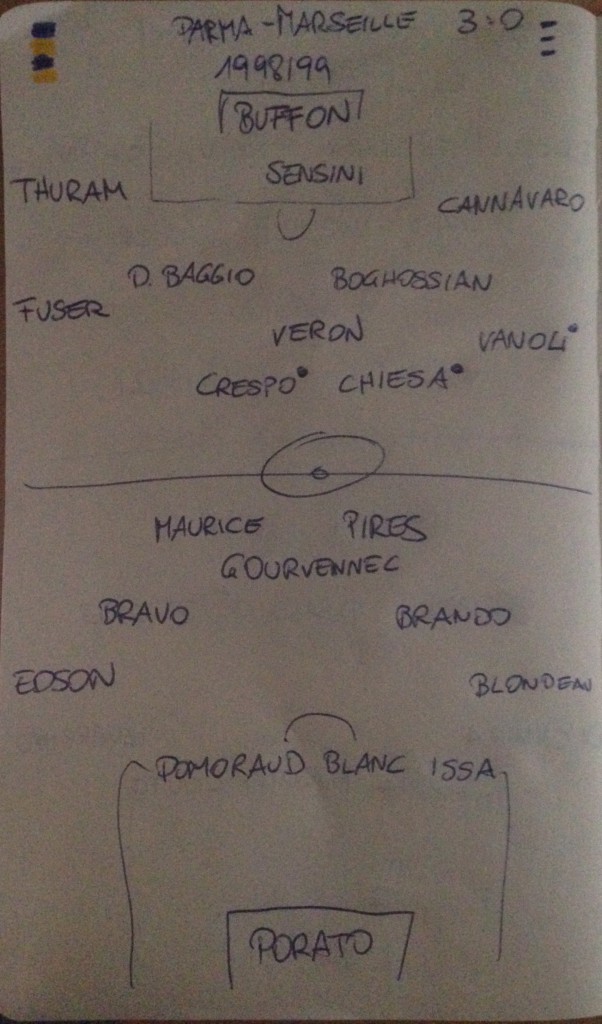 PARMA-MARSEILLE 3:0
1998/99
BUFFON
SENSINI
THURAM CANNAVARO
D. BAGGIO BOGHOSSIAN
FUSER
VERON VANOLI
CRESPO CHIESA
MAURICE PIRES
GOURVENNEC
BRAVO BRANDO
EDSON BLONDEAU
DOMORAUD BLANC ISSA
PORATO